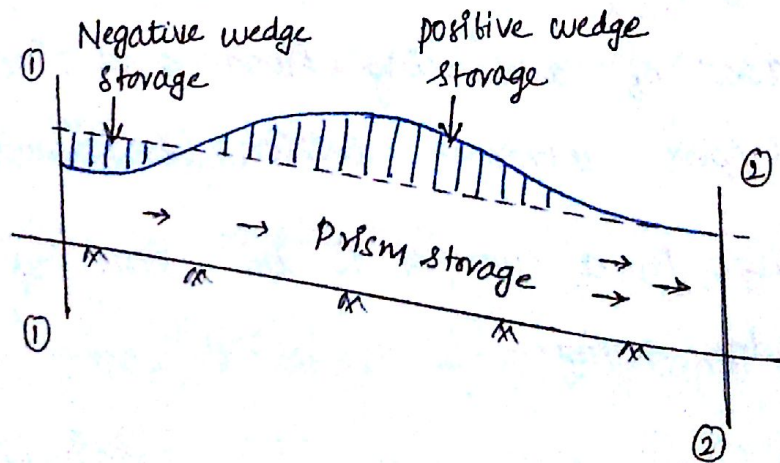 Negative wedge
storage
positive wedge
storage
①
②
Prism storage
①
②